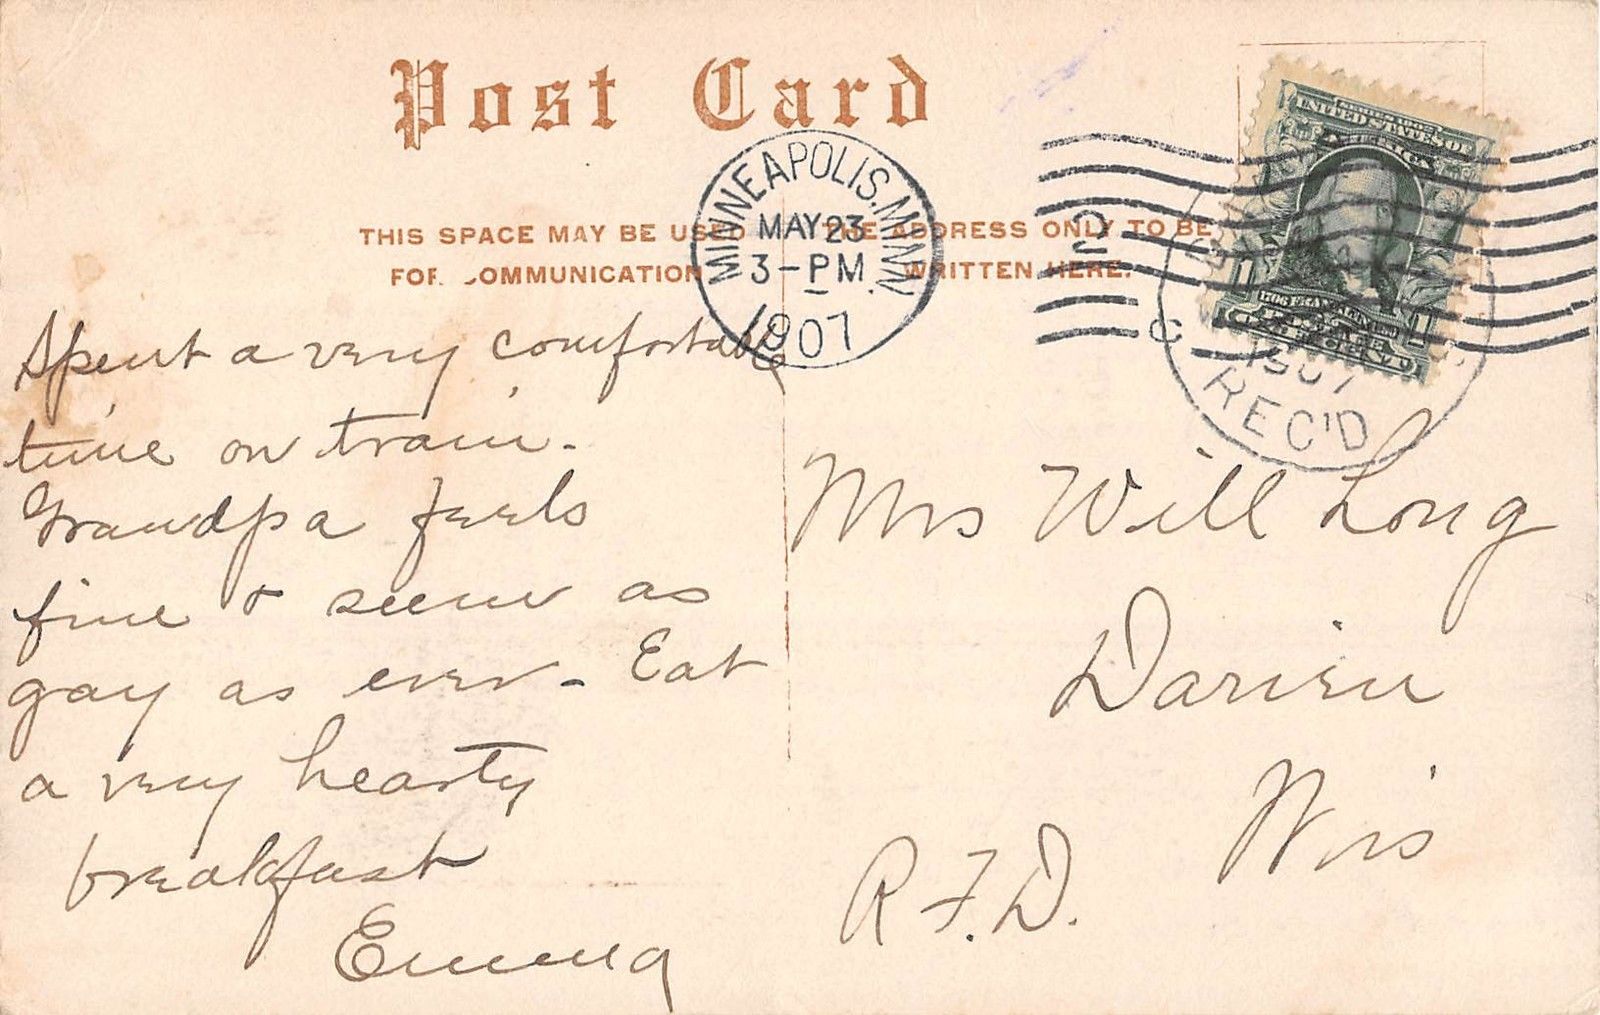 Post Card
THIS SPACE MAY BE USED
FOR COMMUNICATION
THE ADDRESS ONLY TO BE
WRITTEN HERE.
MINNEAPOLIS, MINN.
MAY 23
3-PM
1907
SERIES 1902
UNITED STATES OF
AMERICA
1706 FRANKLIN 1790
1 1
1907
REC'D
Spent a very comfortable
time on train -
Grandpa feels
fine & seem as
gay as ever - Eat
a very hearty
breakfast
Emma
Mrs Will Long
Darien
Wis
R.F.D.